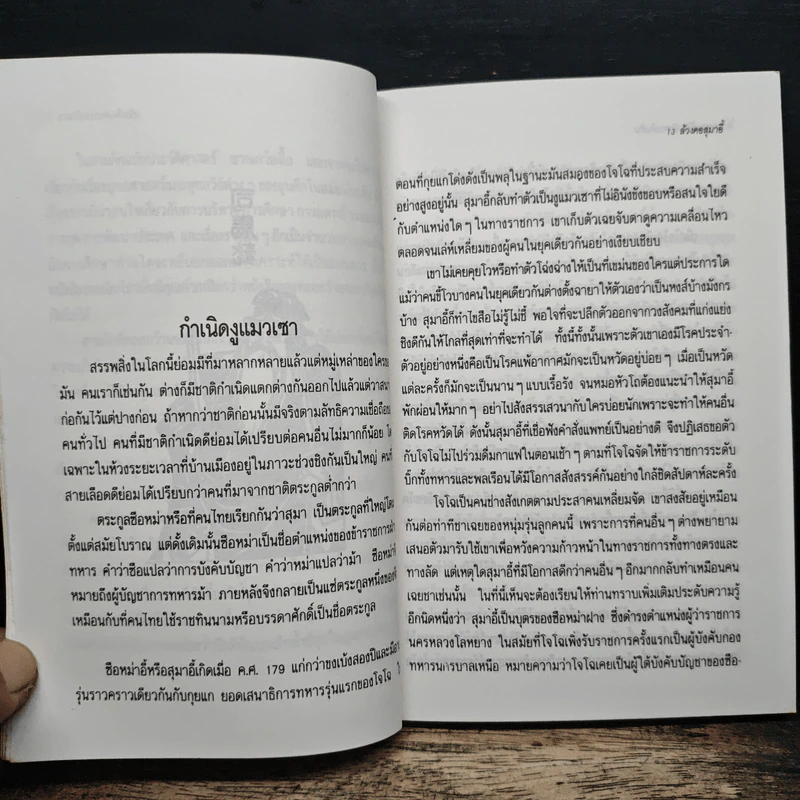 กำเนิดงูแมวเซา
สรรพสิ่งในโลกนี้ย่อมมีที่มาหลากหลายแล้วแต่หมู่เหล่าของใครของ
มัน คนเราก็เช่นกัน ต่างก็มีชาติกำเนิดแตกต่างกันออกไปแล้วแต่วาสนา
ก่อกันไว้แต่ปางก่อน ถ้าหากว่าชาติก่อนนั้นมีจริงตามลัทธิความเชื่อถือของ
คนทั่วไป คนที่มีชาติกำเนิดดีย่อมได้เปรียบต่อคนอื่นไม่มากก็น้อย
เฉพาะในห้วงระยะเวลาที่บ้านเมืองอยู่ในภาวะช่วงชิงกันเป็นใหญ่
สายเลือดดีย่อมได้เปรียบกว่าคนที่มาจากชาติตระกูลต่ำกว่า
ตระกูลซือหม่าหรือที่คนไทยเรียกกันว่าสุมา เป็นตระกูลที่ใหญ่โต
ตั้งแต่สมัยโบราณ แต่ดั้งเดิมนั้นซือหม่าเป็นชื่อตำแหน่งของข้าราชการฝ่าย
ทหาร คำว่าซือแปลว่าการบังคับบัญชา คำว่าหม่าแปลว่าม้า
หมายถึงผู้บัญชาการทหารม้า ภายหลังจึงกลายเป็นแซ่ตระกูลหนึ่งของ
เหมือนกับที่คนไทยใช้ราชทินนามหรือบรรดาศักดิ์เป็นชื่อตระกูล
ซือหม่าอี้หรือสุมาอี้เกิดเมื่อ ค.ศ. 179 แก่กว่าขงเบ้งสองปีและมี
รุ่นราวคราวเดียวกันกับกุยแก ยอดเสนาธิการทหารรุ่นแรกของโจโฉ
13 ล้วงคอสุมาอี้
ตอนที่กุยแกโด่งดังเป็นพลุในฐานะมันสมองของโจโฉที่ประสบความสำเร็จ
อย่างสูงอยู่นั้น สุมาอี้กลับทำตัวเป็นงูแมวเซาที่ไม่อินังขังขอบหรือสนใจใยดี
กับตำแหน่งใดๆ ในทางราชการ เขาเก็บตัวเฉยจับตาดูความเคลื่อนไหว
ตลอดจนเล่ห์เหลี่ยมของผู้คนในยุคเดียวกันอย่างเงียบเชียบ
เขาไม่เคยคุยโวหรือทำตัวโฉ่งฉ่างให้เป็นที่เขม่นของใครแต่ประการใด
แม้ว่าคนขี้โวบางคนในยุคเดียวกันต่างตั้งฉายาให้ตัวเองว่าเป็นหงส์บ้างมังกร
บ้าง สุมาอี้ก็ทำไขสือไม่รู้ไม่ชี้ พอใจที่จะปลีกตัวออกจากวงสังคมที่แก่งแย่ง
ชิงดีกันให้ไกลที่สุดเท่าที่จะทำได้ ทั้งนี้ทั้งนั้นเพราะตัวเขาเองมีโรคประจำ-
ตัวอยู่อย่างหนึ่งคือเป็นโรคแพ้อากาศมักจะเป็นหวัดอยู่บ่อยๆ เมื่อเป็นหวัด
แต่ละครั้งก็มักจะเป็นนานๆ แบบเรื้อรัง จนหมอหัวโถต้องแนะนำให้สุมาอี้
พักผ่อนให้มากๆ อย่าไปสังสรรเสวนากับใครบ่อยนักเพราะจะทำให้คนอื่น
ติดโรคหวัดได้ ดังนั้นสุมาอี้ที่เชื่อฟังคำสั่งแพทย์เป็นอย่างดี จึงปฏิเสธขอตัว
กับโจโฉไม่ไปร่วมดื่มกาแฟในตอนเช้าๆ ตามที่โจโฉจัดให้ข้าราชการระดับ
บิ๊กทั้งทหารและพลเรือนได้มีโอกาสสังสรรค์กันอย่างใกล้ชิดสัปดาห์ละครั้ง
โจโฉเป็นคนช่างสังเกตตามประสาคนเหลี่ยมจัด เขาสงสัยอยู่เหมือน
กันต่อท่าทีชาเฉยของหนุ่มรุ่นลูกคนนี้ เพราะการที่คนอื่นๆ ต่างพยายาม
เสนอตัวมารับใช้เขาเพื่อหวังความก้าวหน้าในทางราชการทั้งทางตรงและ
ทางลัด แต่เหตุใดสุมาอี้ที่มีโอกาสดีกว่าคนอื่นๆ อีกมากกลับทำเหมือนคน
เฉยชาเช่นนั้น ในที่นี้เห็นจะต้องเรียนให้ท่านทราบเพิ่มเติมประดับความรู้
อีกนิดหนึ่งว่า สุมาอี้เป็นบุตรของซือหม่าฝาง ซึ่งดำรงตำแหน่งผู้ว่าราชการ
นครหลวงโลหยาง ในสมัยที่โจโฉเพิ่งรับราชการครั้งแรกเป็นผู้บังคับกอง
ทหารนครบาลเหนือ หมายความว่าโจโฉเคยเป็นผู้ใต้บังคับบัญชาของซือ-